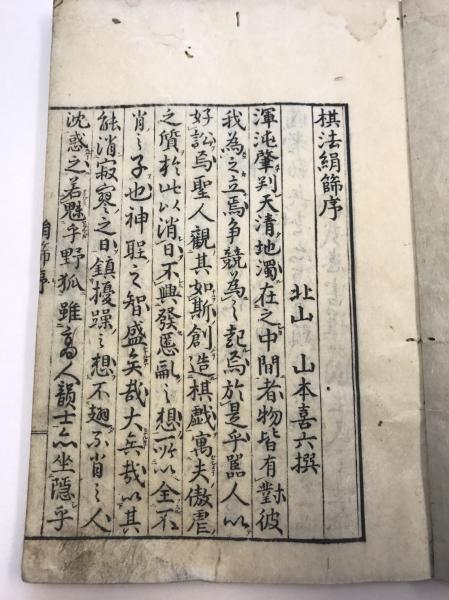 棋法絹篩序
北山 山本喜六撰
渾沌肇判天清地濁在之中間者物皆有對彼
我為之立焉争競為之起焉於是乎嚚人以
好訟焉聖人觀其如斯創造棋戲寓夫傲虐
之質於此以消日不興發慝亂之想所以全不
肖之子也神聖之智盛矣哉大矣哉以其
能消寂寥之日鎮擾躁之想不翅不肖之人
沈惑之若魅乎野狐雖高人韻士亦坐隱乎
絹篩序